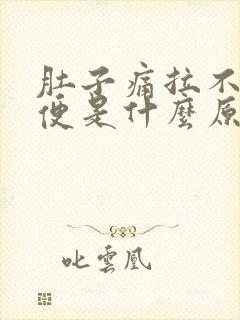 肚子痛拉不
便是什麼原
叱雲凰